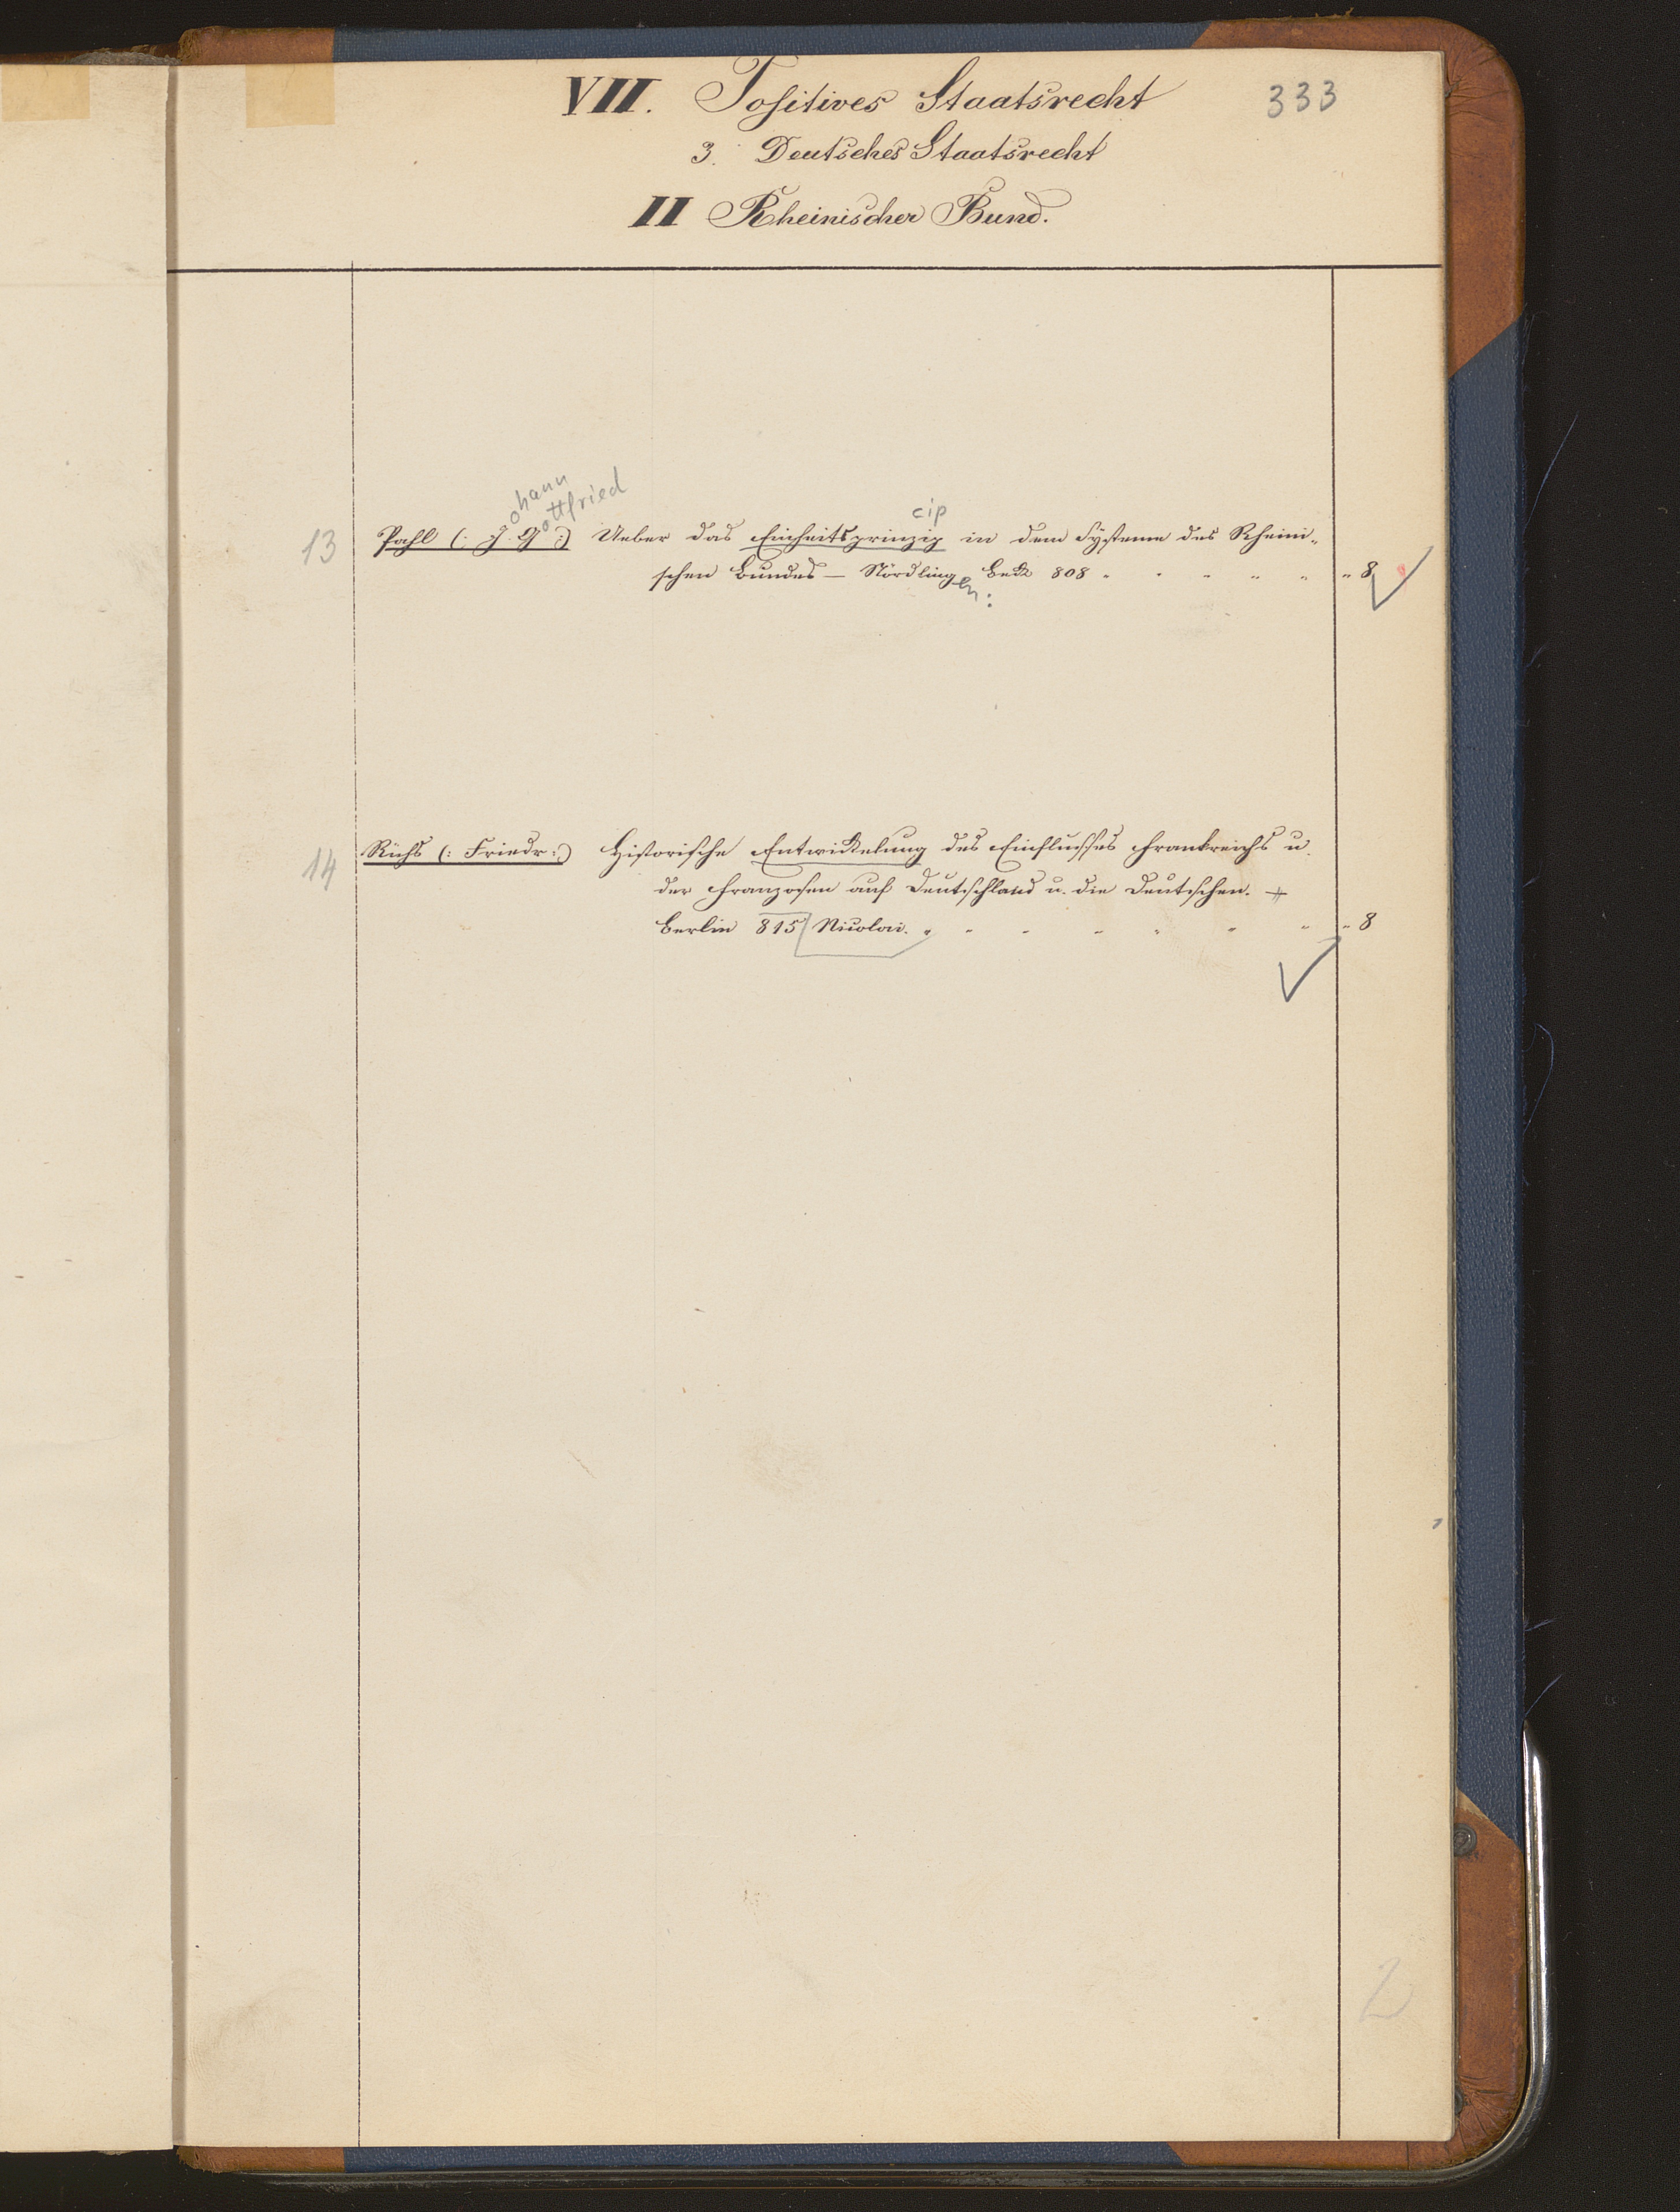 VII. Positives Staatsrecht 333
3. Deutsches Staatsrecht
II Rheinischer Bund.
ohann
ottfried
cip
13 Pahl (: J. G :) Ueber das Einheitsprinzip in dem Systeme des Rheini-
schen Bundes — Nördling Beck 808 " " " " " " 8
en :
14 Rühs (: Friedr :) Historische Entwickelung des Einflusses Frankreichs u.
der Franzosen auf Deutschland u. die Deutschen. +
Berlin 815 Nicolai. " " " " " " " " 8
2